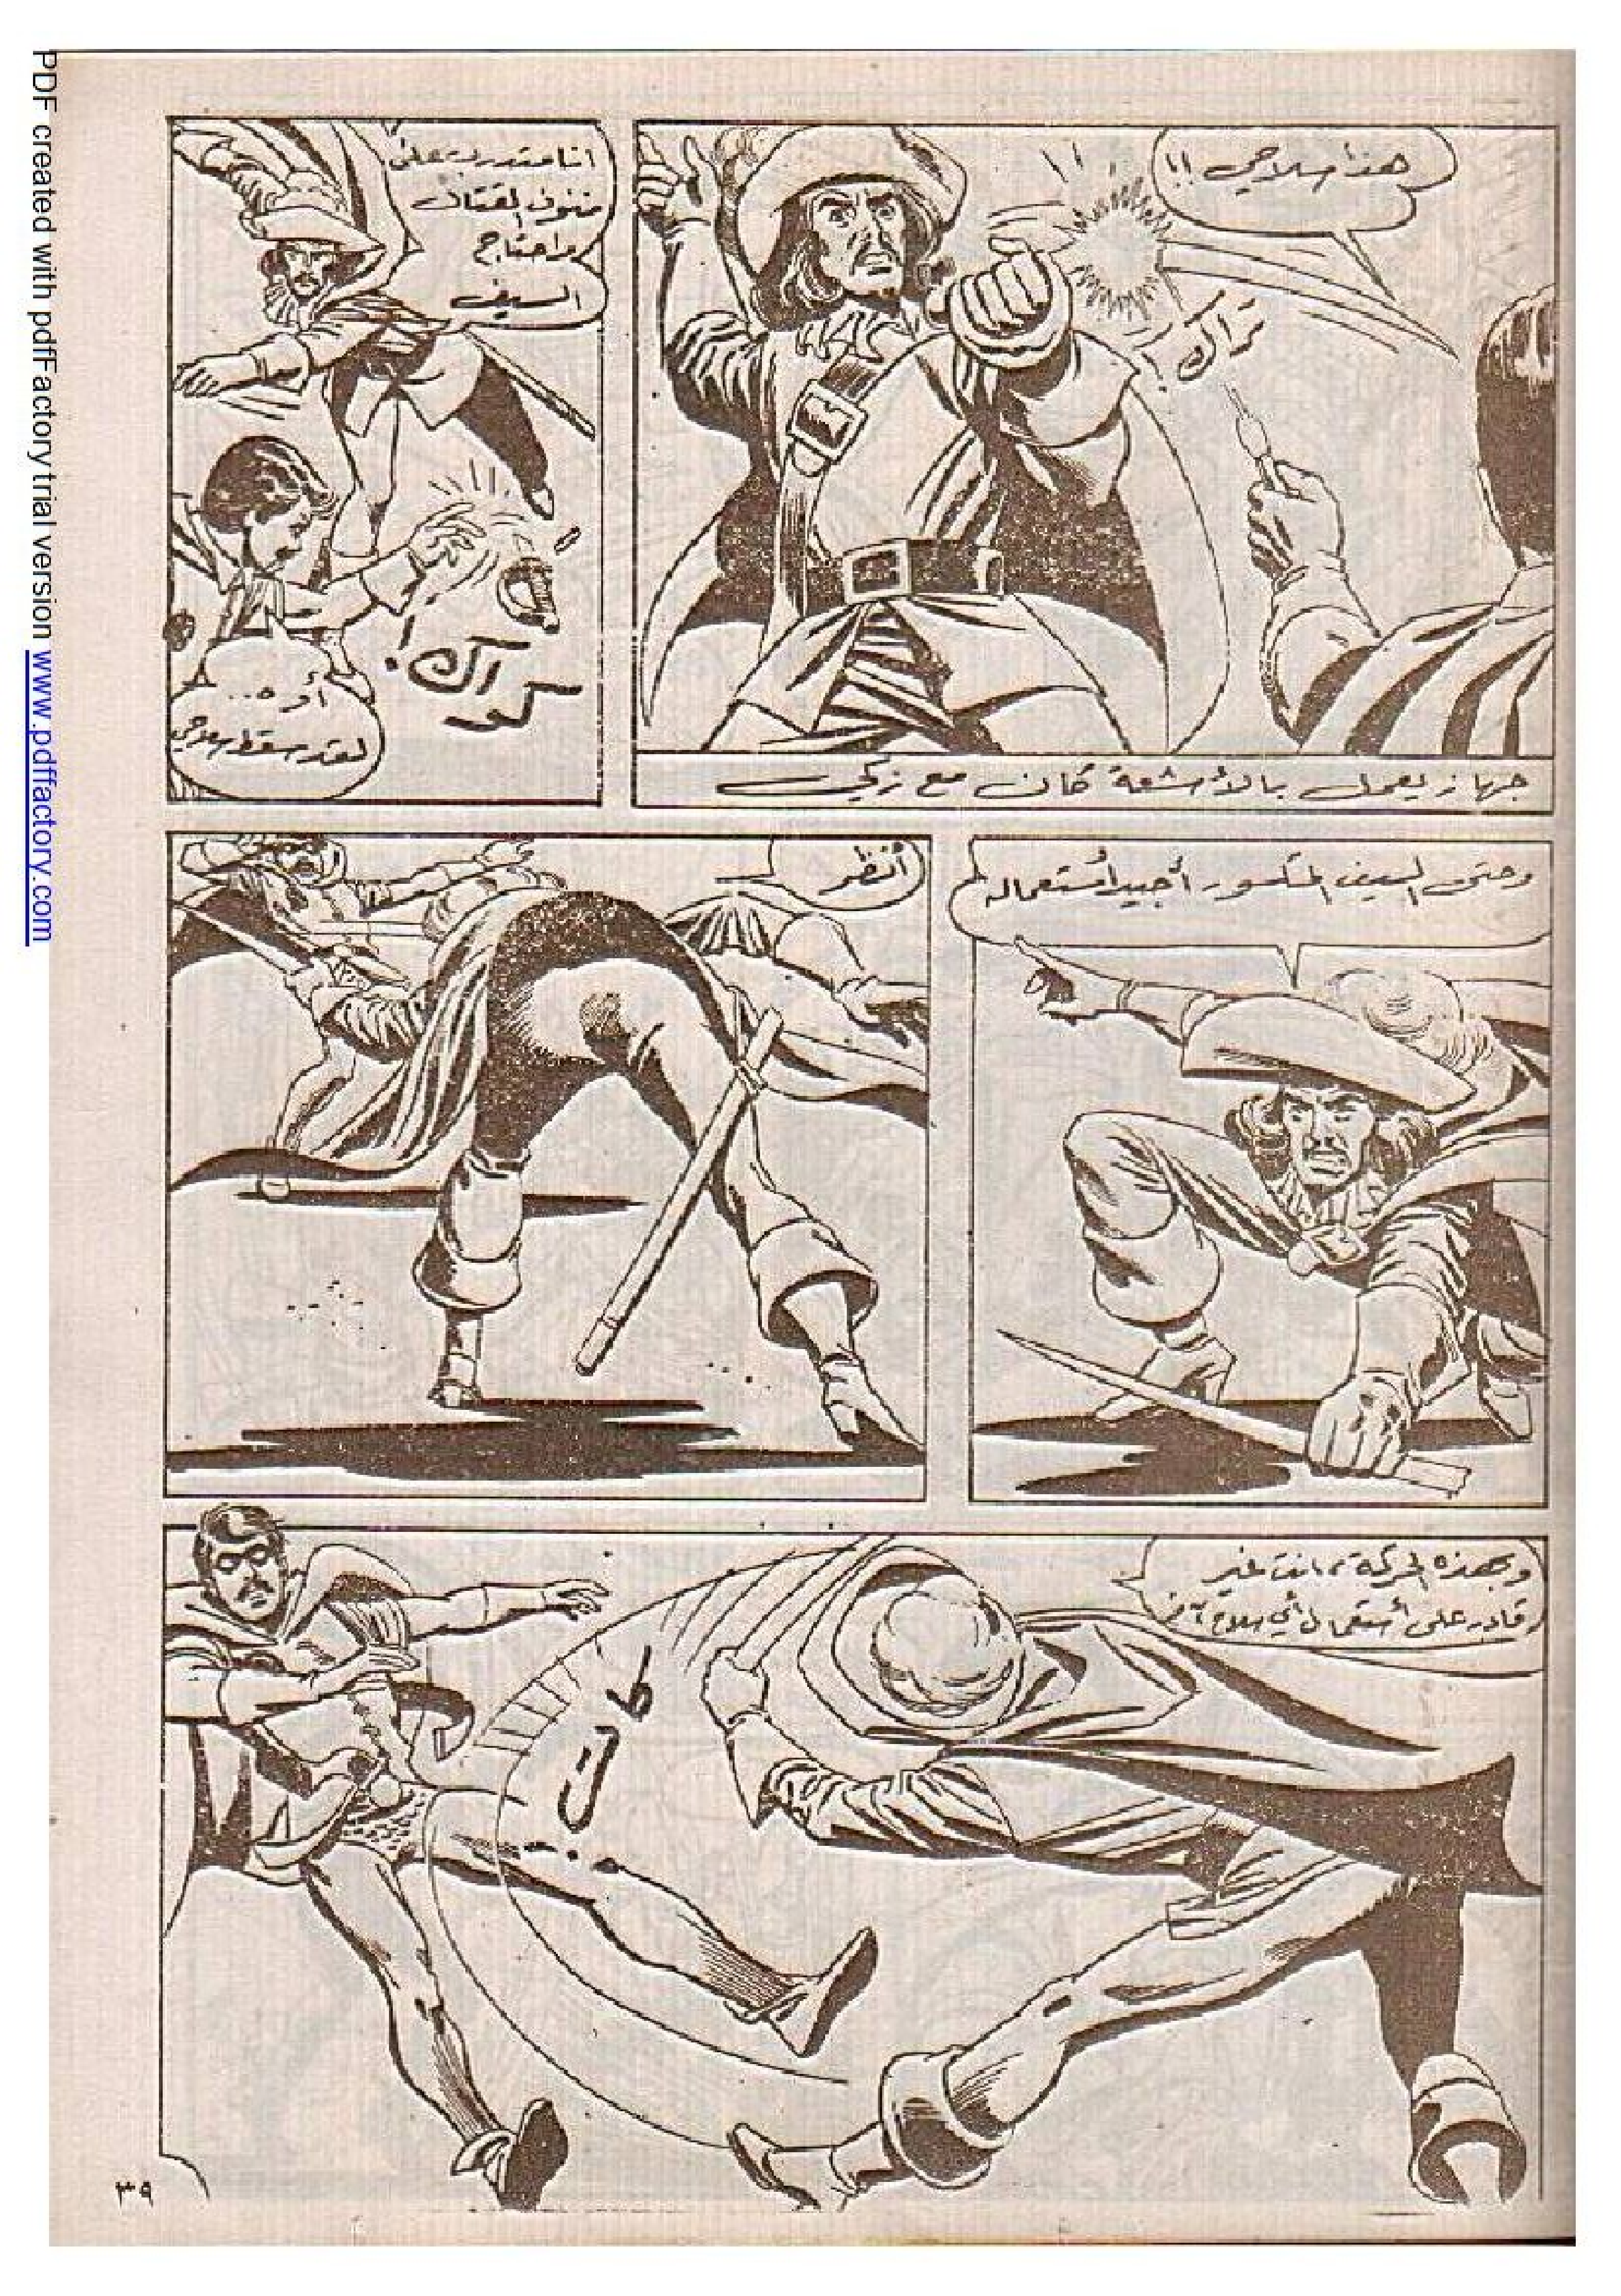 هذا سلاحي !!
تراك
جهاز يعمل بالأشعة كان مع زكي
انا متدرب على
فنون القتال
واحتاج
السيف
كراك!
أوه..
لقد سقط سلاحي
وحتى السيف المكسور أجيد أستعماله
أنظر
وبهذه الحركة، انت غير
قادر على أستعمال أي سلاح آخر
طاخ
٣٩
PDF created with pdfFactory trial version www.pdffactory.com